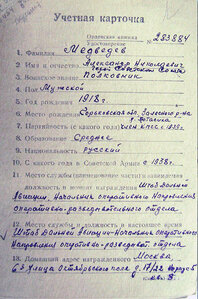 Учетная карточка
Орденская книжка
удостоверение № 283884
1. Фамилия Медведев
2. Имя и отчество Александр Николаевич
Герой Советского Союза
3. Воинское звание Полковник
4. Пол Мужской
5. Год рождения 1918 г.
6. Место рождения
7. Партийность (с какого года) член КПСС с
8. Образование Среднее
9. Национальность русский
10. С какого года в Советской Армии с 1938 г.
11. Место службы (наименование части) и занимаемая
должность в момент награждения Штаб Дальней
Авиации, Начальник оперативного Направления
оперативно-разведывательного отдела
12. Место службы, должность в настоящее время
Штаб Дальней Авиации - Начальник оперативного
Направления отдела
13. Домашний адрес награжденного Москва,
6-я улица Октябрьского поля д. корпус 6
кв.